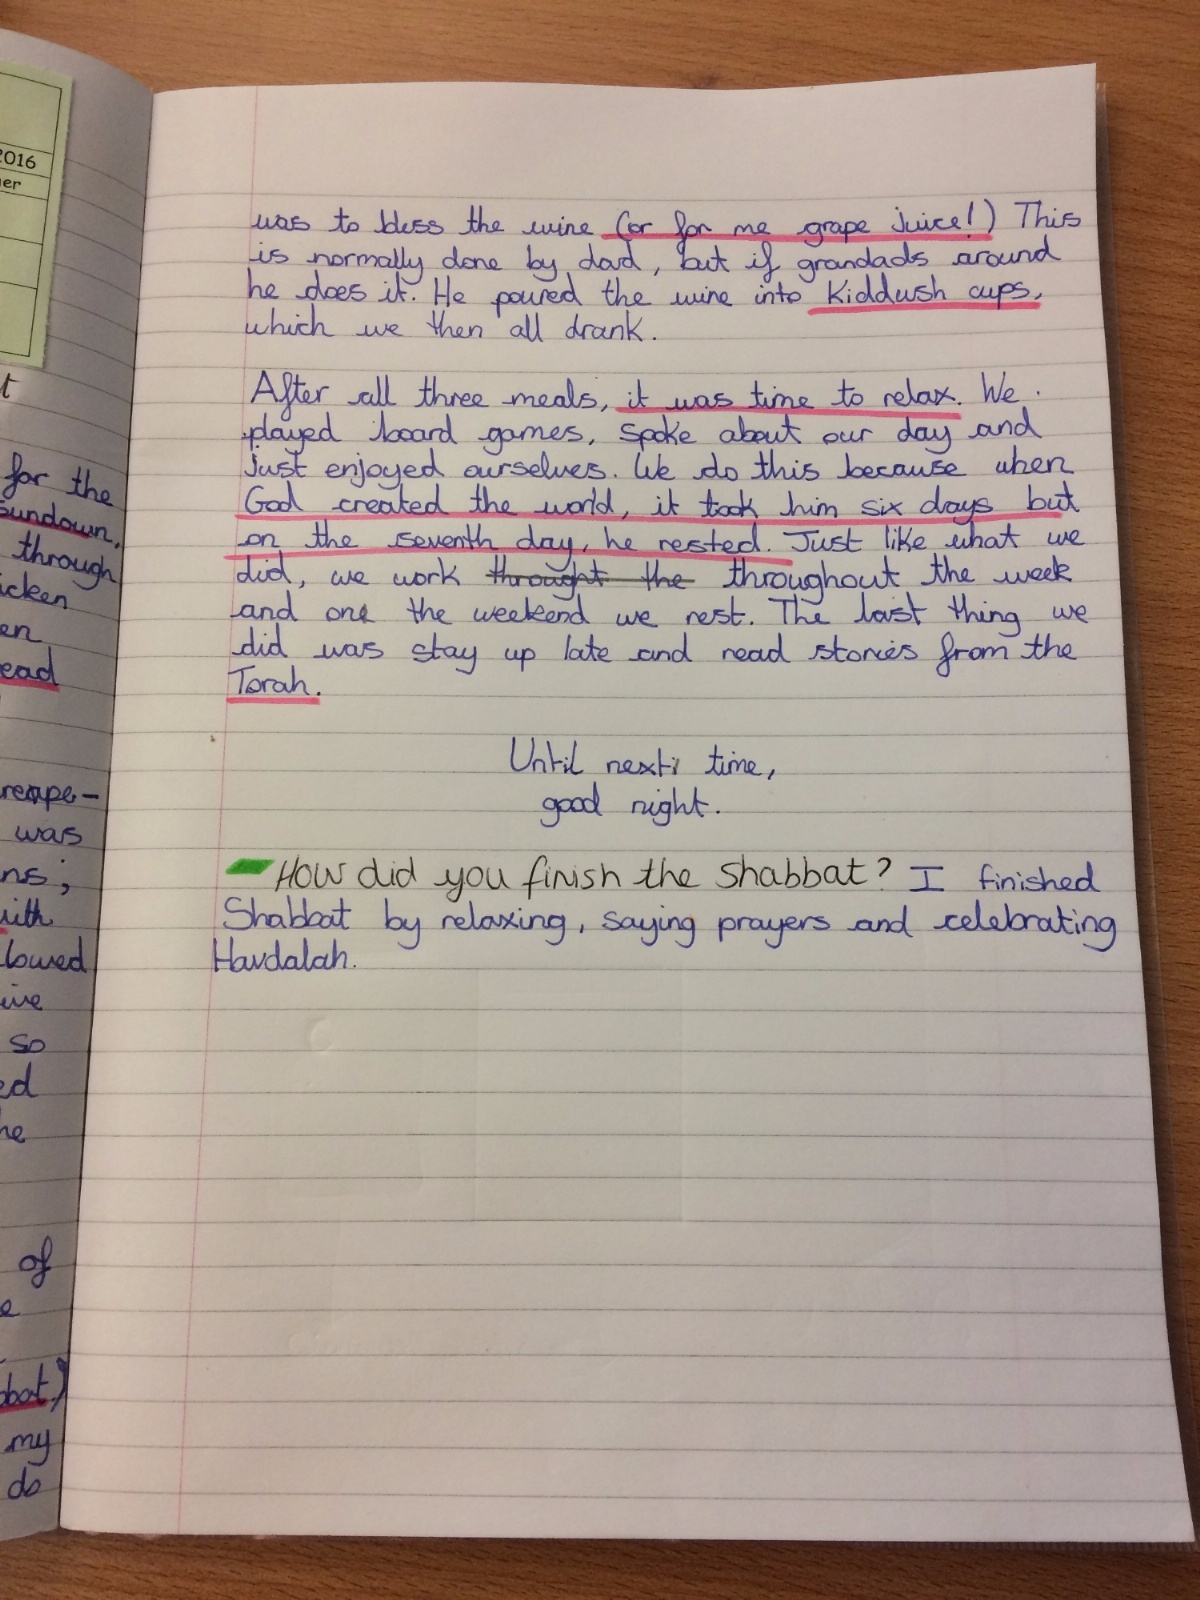 2016
er
t
for the
sundown,
through
icken
en
ead
reape-
was
ns;
with
lowed
ive
so
ed
he
of
e
bbat)
my
do
was to bless the wine (or for me grape juice!) This
is normally done by dad, but if grandads around
he does it. He poured the wine into Kiddush cups,
which we then all drank.
After all three meals, it was time to relax. We
played board games, spoke about our day and
just enjoyed ourselves. We do this because when
God created the world, it took him six days but
on the seventh day, he rested. Just like what we
did, we work throught the throughout the week
and one the weekend we rest. The last thing we
did was stay up late and read stories from the
Torah.
Until next time,
good night.
How did you finish the Shabbat? I finished
Shabbat by relaxing, saying prayers and celebrating
Havdalah.